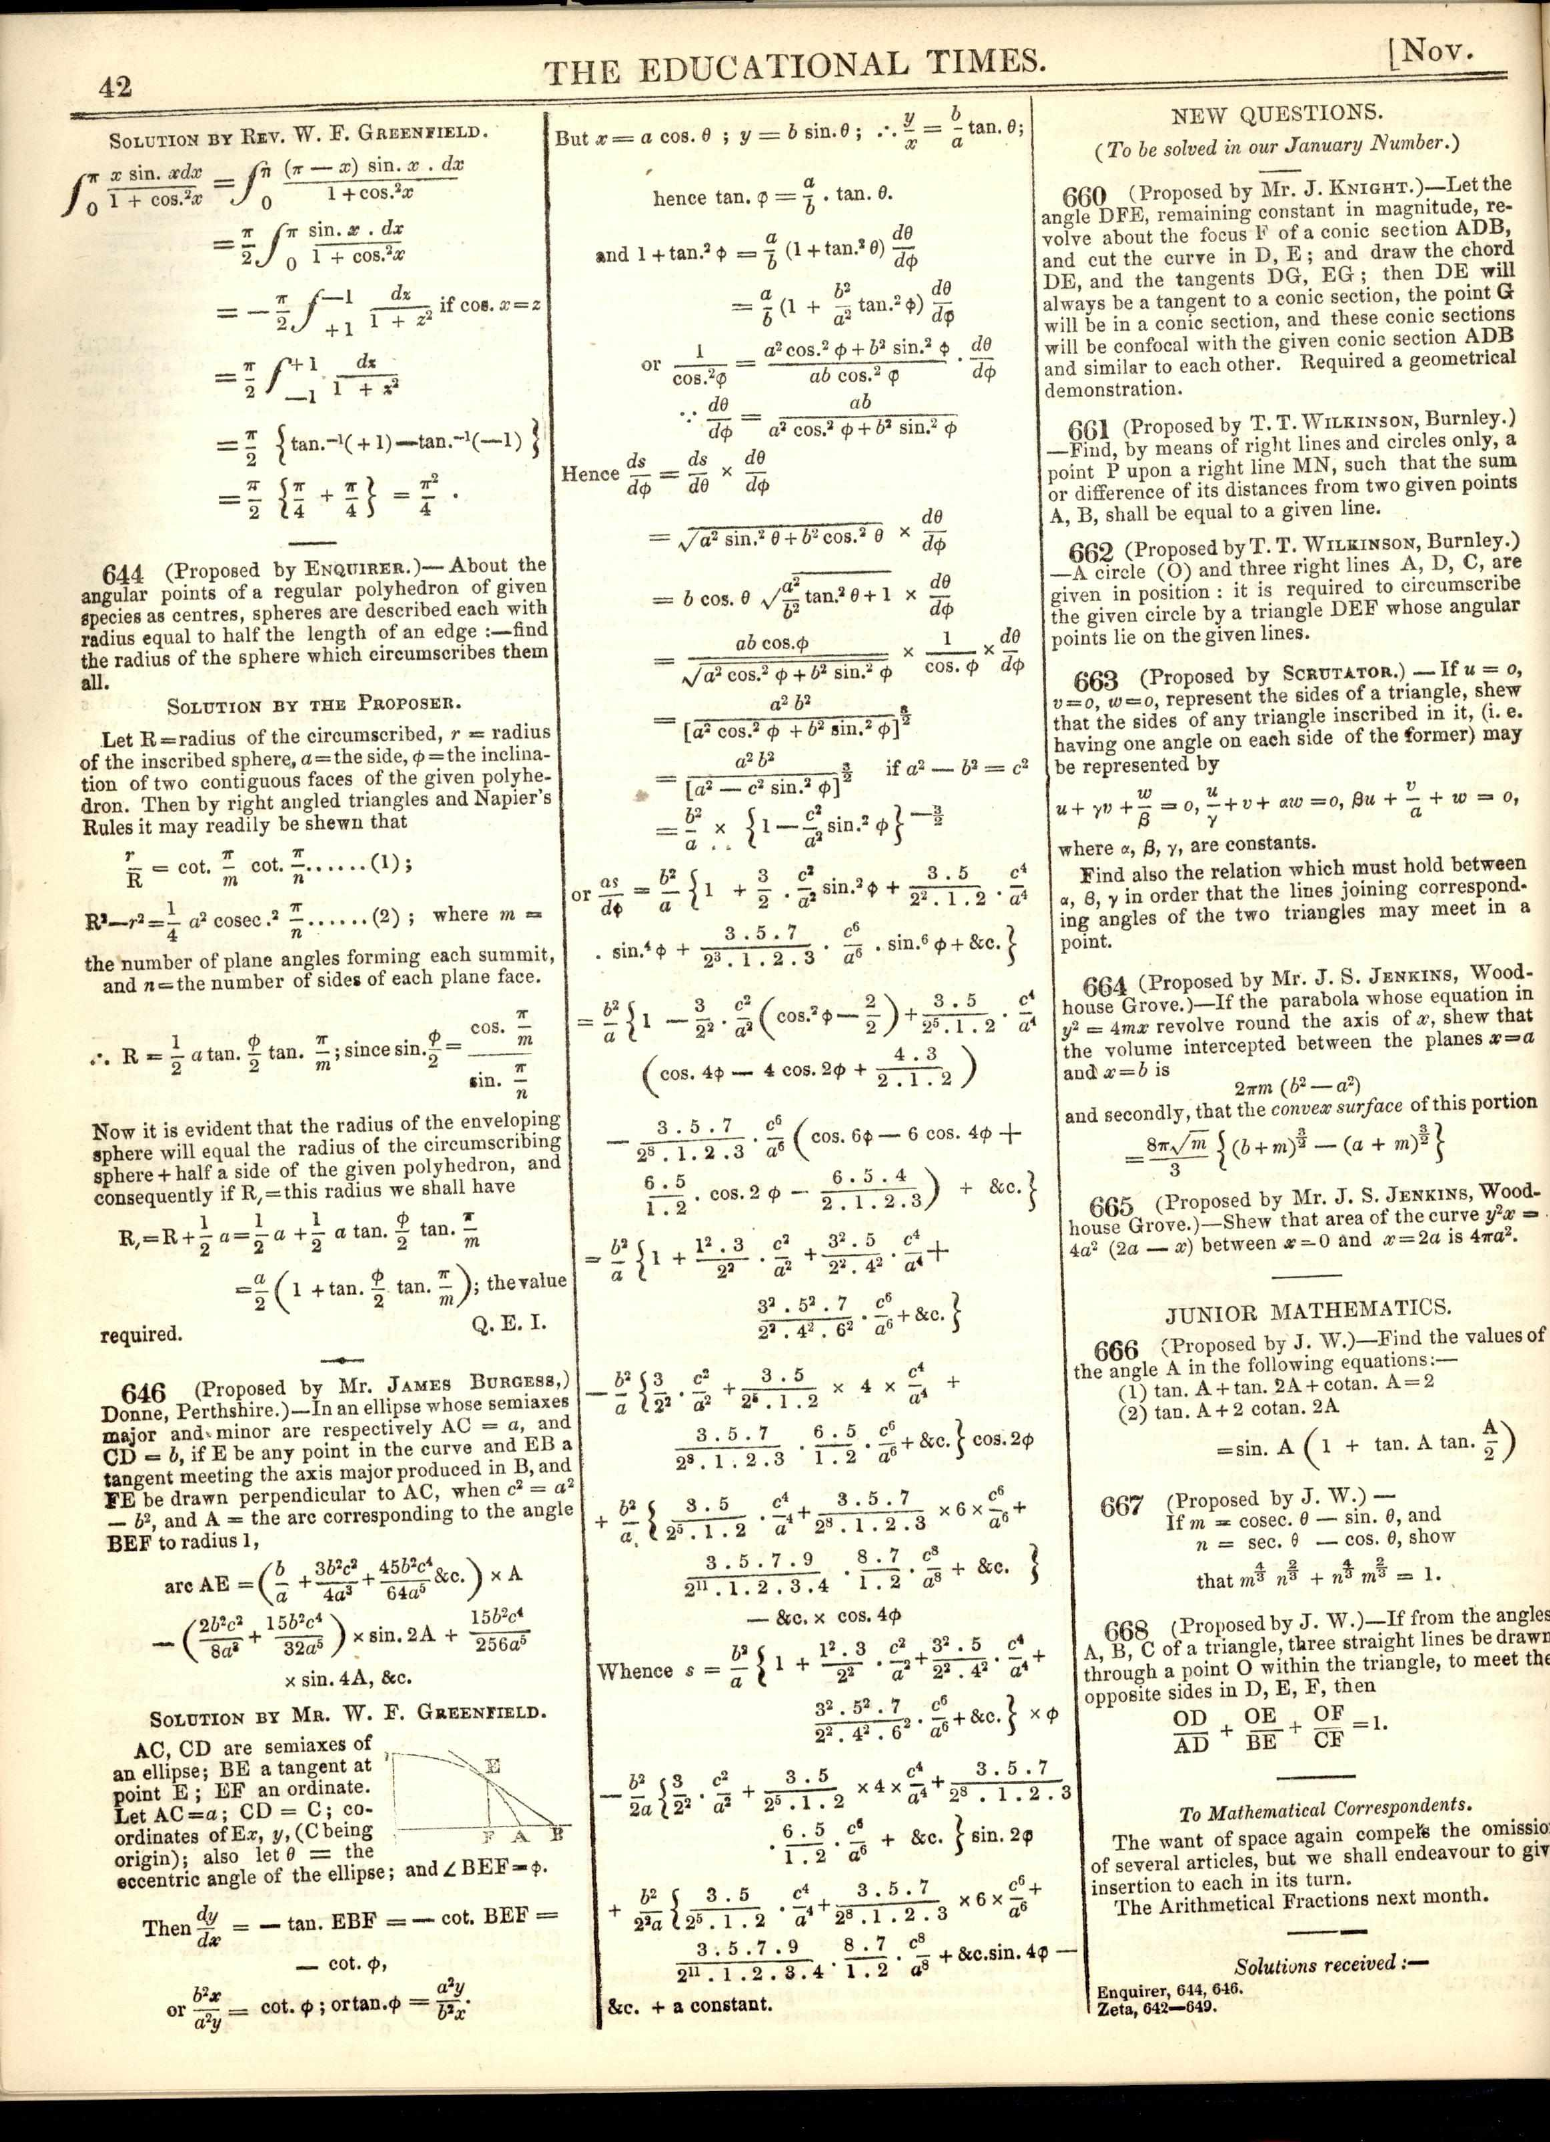 42
THE EDUCATIONAL TIMES.
[Nov.
SOLUTION BY REV. W. F. GREENFIELD.
∫₀^π x sin. xdx / 1 + cos.²x = ∫₀^π (π — x) sin. x . dx / 1 + cos.²x
= π/2 ∫₀^π sin. x . dx / 1 + cos.²x
= — π/2 ∫₊₁^—1 dz / 1 + z² if cos. x = z
= π/2 ∫₋₁^+1 dz / 1 + z²
= π/2 {tan.⁻¹(+1)—tan.⁻¹(—1)}
= π/2 {π/4 + π/4} = π²/4 .
644 (Proposed by ENQUIRER.)— About the
angular points of a regular polyhedron of given
species as centres, spheres are described each with
radius equal to half the length of an edge :—find
the radius of the sphere which circumscribes them
all.
SOLUTION BY THE PROPOSER.
Let R=radius of the circumscribed, r = radius
of the inscribed sphere, a=the side, φ=the inclina-
tion of two contiguous faces of the given polyhe-
dron. Then by right angled triangles and Napier's
Rules it may readily be shewn that
r/R = cot. π/m cot. π/n ......(1);
R²—r²= 1/4 a² cosec.² π/n ......(2); where m =
the number of plane angles forming each summit,
and n=the number of sides of each plane face.
∴ R = 1/2 a tan. φ/2 tan. π/m; since sin. φ/2 = cos. π/m / sin. π/n
Now it is evident that the radius of the enveloping
sphere will equal the radius of the circumscribing
sphere + half a side of the given polyhedron, and
consequently if R,=this radius we shall have
R,=R+ 1/2 a= 1/2 a + 1/2 a tan. φ/2 tan. π/m
= a/2 (1 + tan. φ/2 tan. π/m); the value
required. Q. E. I.
646 (Proposed by Mr. JAMES BURGESS,)
Donne, Perthshire.)—In an ellipse whose semiaxes
major and minor are respectively AC = a, and
CD = b, if E be any point in the curve and EB a
tangent meeting the axis major produced in B, and
FE be drawn perpendicular to AC, when c² = a²
— b², and A = the arc corresponding to the angle
BEF to radius 1,
arc AE = (b/a + 3b²c²/4a³ + 45b²c⁴/64a⁵ &c.) × A
— (2b²c²/8a³ + 15b²c⁴/32a⁵) × sin. 2A + 15b²c⁴/256a⁵
× sin. 4A, &c.
SOLUTION BY MR. W. F. GREENFIELD.
AC, CD are semiaxes of
an ellipse; BE a tangent at
point E; EF an ordinate.
Let AC=a; CD = C; co-
ordinates of Ex, y, (C being
origin); also let θ = the
eccentric angle of the ellipse; and ∠BEF=φ.
E
F A B
Then dy/dx = — tan. EBF = — cot. BEF =
— cot. φ,
or b²x/a²y = cot. φ; or tan. φ = a²y/b²x.
But x = a cos. θ ; y = b sin. θ ; ∴ y/x = b/a tan. θ;
hence tan. φ = a/b . tan. θ.
and 1 + tan.² φ = a/b (1 + tan.² θ) dθ/dφ
= a/b (1 + b²/a² tan.² φ) dθ/dφ
or 1/cos.²φ = a² cos.² φ + b² sin.² φ / ab cos.² φ . dθ/dφ
∵ dθ/dφ = ab / a² cos.² φ + b² sin.² φ
Hence ds/dφ = ds/dθ × dθ/dφ
= √a² sin.² θ + b² cos.² θ × dθ/dφ
= b cos. θ √a²/b² tan.² θ + 1 × dθ/dφ
= ab cos.φ / √a² cos.² φ + b² sin.² φ × 1/cos. φ × dθ/dφ
= a² b² / [a² cos.² φ + b² sin.² φ]^3/2
= a² b² / [a² — c² sin.² φ]^3/2 if a² — b² = c²
= b²/a × {1 — c²/a² sin.² φ}^—3/2
or ds/dφ = b²/a {1 + 3/2 . c²/a² sin.² φ + 3 . 5 / 2² . 1 . 2 . c⁴/a⁴
. sin.⁴ φ + 3 . 5 . 7 / 2³ . 1 . 2 . 3 . c⁶/a⁶ . sin.⁶ φ + &c.}
= b²/a {1 — 3/2² . c²/a² (cos.² φ — 2/2) + 3 . 5 / 2⁵ . 1 . 2 . c⁴/a⁴
(cos. 4φ — 4 cos. 2φ + 4 . 3 / 2 . 1 . 2)
— 3 . 5 . 7 / 2⁸ . 1 . 2 . 3 . c⁶/a⁶ (cos. 6φ — 6 cos. 4φ +
6 . 5 / 1 . 2 . cos. 2 φ — 6 . 5 . 4 / 2 . 1 . 2 . 3) + &c.}
= b²/a {1 + 1² . 3 / 2² . c²/a² + 3² . 5 / 2² . 4² . c⁴/a⁴ +
3² . 5² . 7 / 2² . 4² . 6² . c⁶/a⁶ + &c.}
— b²/a {3/2² . c²/a² + 3 . 5 / 2⁵ . 1 . 2 × 4 × c⁴/a⁴ +
3 . 5 . 7 / 2⁸ . 1 . 2 . 3 . 6 . 5 / 1 . 2 . c⁶/a⁶ + &c.} cos. 2φ
+ b²/a {3 . 5 / 2⁵ . 1 . 2 . c⁴/a⁴ + 3 . 5 . 7 / 2⁸ . 1 . 2 . 3 × 6 × c⁶/a⁶ +
3 . 5 . 7 . 9 / 2¹¹ . 1 . 2 . 3 . 4 . 8 . 7 / 1 . 2 . c⁸/a⁸ + &c. }
— &c. × cos. 4φ
Whence s = b²/a {1 + 1² . 3 / 2² . c²/a² + 3² . 5 / 2² . 4² . c⁴/a⁴ +
3² . 5² . 7 / 2² . 4² . 6² . c⁶/a⁶ + &c.} × φ
— b²/2a {3/2² . c²/a² + 3 . 5 / 2⁵ . 1 . 2 × 4 × c⁴/a⁴ + 3 . 5 . 7 / 2⁸ . 1 . 2 . 3
. 6 . 5 / 1 . 2 . c⁶/a⁶ + &c. } sin. 2φ
+ b²/2²a {3 . 5 / 2⁵ . 1 . 2 . c⁴/a⁴ + 3 . 5 . 7 / 2⁸ . 1 . 2 . 3 × 6 × c⁶/a⁶ +
3 . 5 . 7 . 9 / 2¹¹ . 1 . 2 . 3 . 4 . 8 . 7 / 1 . 2 . c⁸/a⁸ + &c. sin. 4φ —
&c. + a constant.
NEW QUESTIONS.
(To be solved in our January Number.)
660 (Proposed by Mr. J. KNIGHT.)—Let the
angle DFE, remaining constant in magnitude, re-
volve about the focus F of a conic section ADB,
and cut the curve in D, E; and draw the chord
DE, and the tangents DG, EG; then DE will
always be a tangent to a conic section, the point G
will be in a conic section, and these conic sections
will be confocal with the given conic section ADB
and similar to each other. Required a geometrical
demonstration.
661 (Proposed by T. T. WILKINSON, Burnley.)
—Find, by means of right lines and circles only, a
point P upon a right line MN, such that the sum
or difference of its distances from two given points
A, B, shall be equal to a given line.
662 (Proposed by T. T. WILKINSON, Burnley.)
—A circle (O) and three right lines A, D, C, are
given in position : it is required to circumscribe
the given circle by a triangle DEF whose angular
points lie on the given lines.
663 (Proposed by SCRUTATOR.) — If u = o,
v=o, w=o, represent the sides of a triangle, shew
that the sides of any triangle inscribed in it, (i. e.
having one angle on each side of the former) may
be represented by
u + γv + w/β = o, u/γ + v + αw = o, βu + v/α + w = o,
where α, β, γ, are constants.
Find also the relation which must hold between
α, β, γ in order that the lines joining correspond-
ing angles of the two triangles may meet in a
point.
664 (Proposed by Mr. J. S. JENKINS, Wood-
house Grove.)—If the parabola whose equation in
y² = 4mx revolve round the axis of x, shew that
the volume intercepted between the planes x=a
and x=b is
2πm (b² — a²)
and secondly, that the convex surface of this portion
= 8π√m / 3 {(b + m)^3/2 — (a + m)^3/2}
665 (Proposed by Mr. J. S. JENKINS, Wood-
house Grove.)—Shew that area of the curve y²x =
4a² (2a — x) between x=0 and x=2a is 4πa².
JUNIOR MATHEMATICS.
666 (Proposed by J. W.)—Find the values of
the angle A in the following equations:—
(1) tan. A + tan. 2A + cotan. A = 2
(2) tan. A + 2 cotan. 2A
= sin. A (1 + tan. A tan. A/2)
667 (Proposed by J. W.) —
If m = cosec. θ — sin. θ, and
n = sec. θ — cos. θ, show
that m^4/3 n^2/3 + n^4/3 m^2/3 = 1.
668 (Proposed by J. W.)—If from the angles
A, B, C of a triangle, three straight lines be drawn
through a point O within the triangle, to meet the
opposite sides in D, E, F, then
OD/AD + OE/BE + OF/CF = 1.
To Mathematical Correspondents.
The want of space again compels the omissio
of several articles, but we shall endeavour to giv
insertion to each in its turn.
The Arithmetical Fractions next month.
Solutions received :—
Enquirer, 644, 646.
Zeta, 642—649.